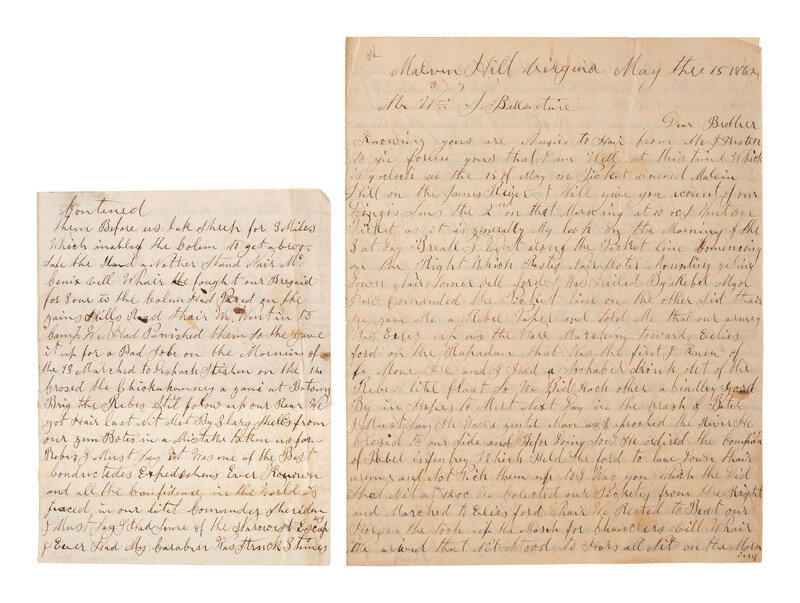 Contened
Them Before us lak Sheep for 3 Miles
Which inabled the Colem to get above
Safe the Made a Nother Stand Nair Mc
Cenix vill Whair He fought our Bregaid
for 3 our is the Colem Had Pased on the
gains Hills Road thair We Wint in to
Camp We Had Punished them so the gave
it up for a Bad Job on the Morning of
the 13 Marched to Stashen on the 14
Crosed the Chickahomney a gane at Botony
Brig the Rebes Stil folow up our Rear We
got Hair Last Nit Met By 3 larg Shells from
our gun Botes in a Mistake taken us for
Rebes I Must Say it Was one of the Best
Conducteds Expedeshens Ever Knowen
and all the Confidence in the World is
placed in our litel Comander Sheridan
I Must Say I Had Some of the Narowest Escaps
I Ever Had My Carabin Was Struck 3 times
Malvin Hill Virgina May the 15 1864
Mr Wm J. Ballentine
Dear Brother
Knowing yours are Anxis to Hair from Me I Hasten
to in form yours that I am Well at this time Which
is 9 oclock on the 15 of May on Picket around Malvin
Hill on the James River I Will give you acount of our
doings Sins the 2nd on that Morning at 10 oc I Wend on
Picket as it is generlly My look on the Morning of the
3 at Day Break I Went along the Picket line Comencing
on the Right Which Rests Nair
down Nair Somer vill ford I Was Hailed By a Rebel Magor
Who Comanded the Picket line on the other Sid thair
He gave Me a Rebel Paper and told Me that our army
Was Every up as the Ware Marching towards Eelies
ford on the Rapedan that Was the first I Knew of
a Move He and I Had a Sochabel drink Out of the
Rebes litel flask So We Bid Each other a kindley good
By in Hopes to Meet Next Day in the Crash of Batel
I Must Say He Was a gentel Man as I aproched the River He
Crosed to our Side and Befor Doing So He ordired the Company
of Rebel infantry Which Held the ford to lave Down thair
armes and Not Pick them up til I Was gon Which the Did
that Nit at 8 oc We Colected our Pickets from the Right
and Marched to Eelies ford Whair We Rested to Beat our
Horses the took up the March for Chancelers vill Whair
We arived that Nit Stood to Hors all Nit on the Morn
ing